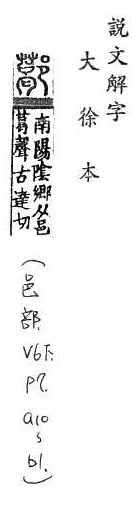 說文解字
大徐本
𨞛
南陽陰鄉从邑
葛聲古達切
(邑部. V6下. P7. a10~b1.)